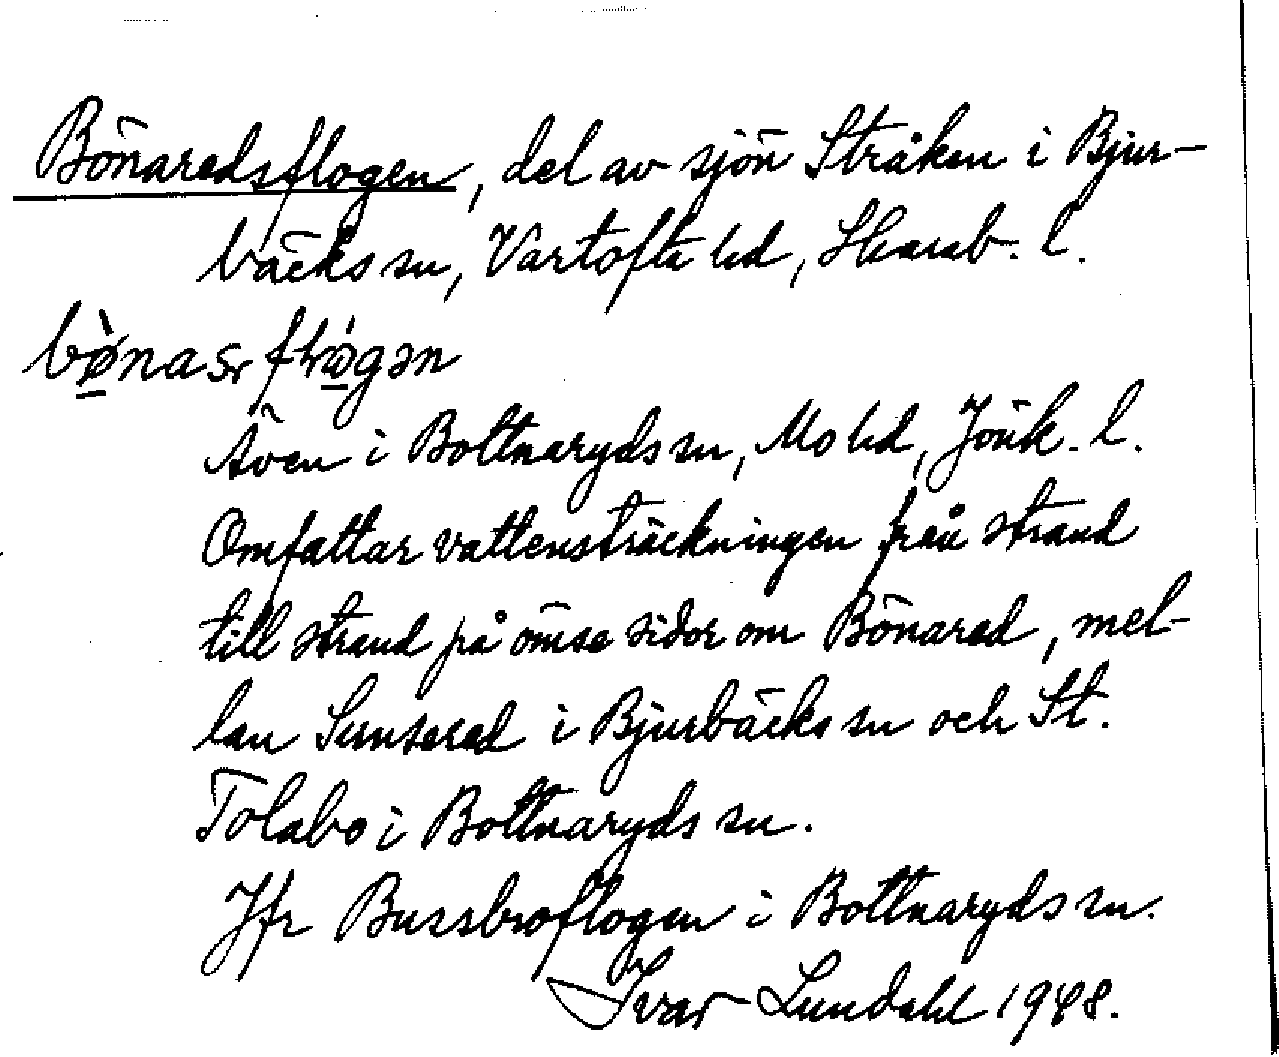 Bönaredsflogen, del av sjön Stråken i Bjur-
bäcks sn, Vartofta hd, Skarab. l.
bø̀nasr flǿgən
Även i Bottnaryds sn, Mo hd, Jönk. l.
Omfattar vattensträckningen från strand
till strand på ömse sidor om Bönared, mel-
lan Sunsered i Bjurbäcks sn och St.
Tolabo i Bottnaryds sn.
Jfr Bussbroflogen i Bottnaryds sn.
Ivar Lundahl 1948.